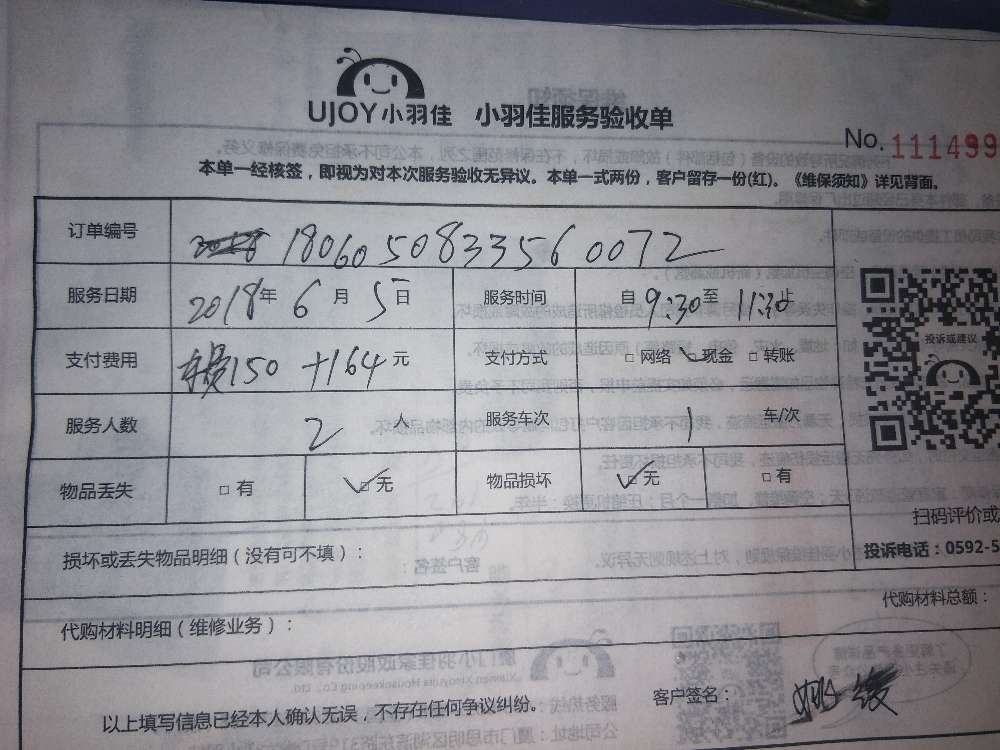 UJOY小羽佳 小羽佳服务验收单
No. 111499
本单一经核签，即视为对本次服务验收无异议。本单一式两份，客户留存一份(红)。《维保须知》详见背面。
订单编号 180605083356 0072
服务日期 2018年 6 月 5 日 服务时间 自 9:30 至 11:30 止
支付费用 150 +164 元 支付方式 □ 网络 ☑ 现金 □ 转账
投诉或建议
服务人数 2 人 服务车次 1 车/次
物品丢失 □ 有 ☑ 无 物品损坏 ☑ 无 □ 有
扫码评价或
损坏或丢失物品明细（没有可不填）：
投诉电话：0592-5
代购材料明细（维修业务）： 代购材料总额：
以上填写信息已经本人确认无误，不存在任何争议纠纷。 客户签名：